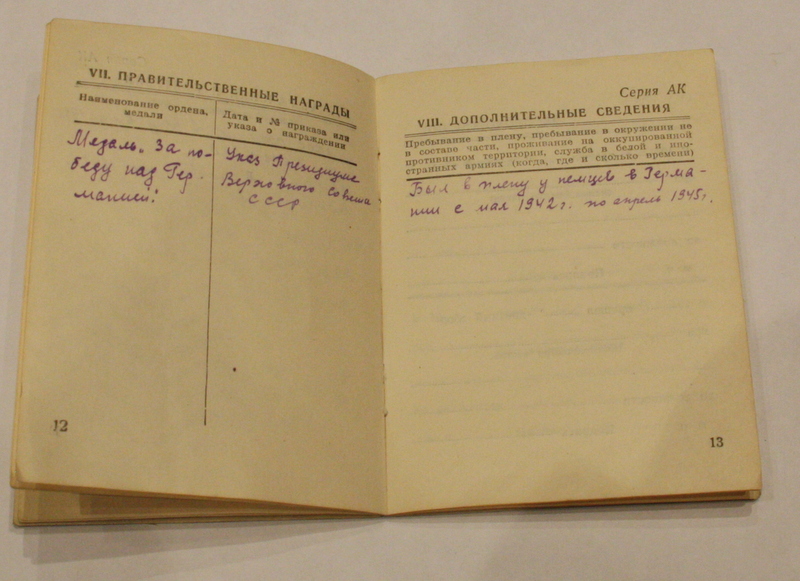 VII. ПРАВИТЕЛЬСТВЕННЫЕ НАГРАДЫ
Наименование ордена,
медали
Дата и № приказа или
указа о награждении
Медаль „За по-
беду над Гер-
манией“
Указ Президиума
Верховного Совета
СССР
12
Серия АК
VIII. ДОПОЛНИТЕЛЬНЫЕ СВЕДЕНИЯ
Пребывание в плену, пребывание в окружении не
в составе части, проживание на оккупированной
противником территории, служба в белой и ино-
странных армиях (когда, где и сколько времени)
Был в плену у немцев в Герма-
нии с мая 1942 г. по апрель 1945 г.
13